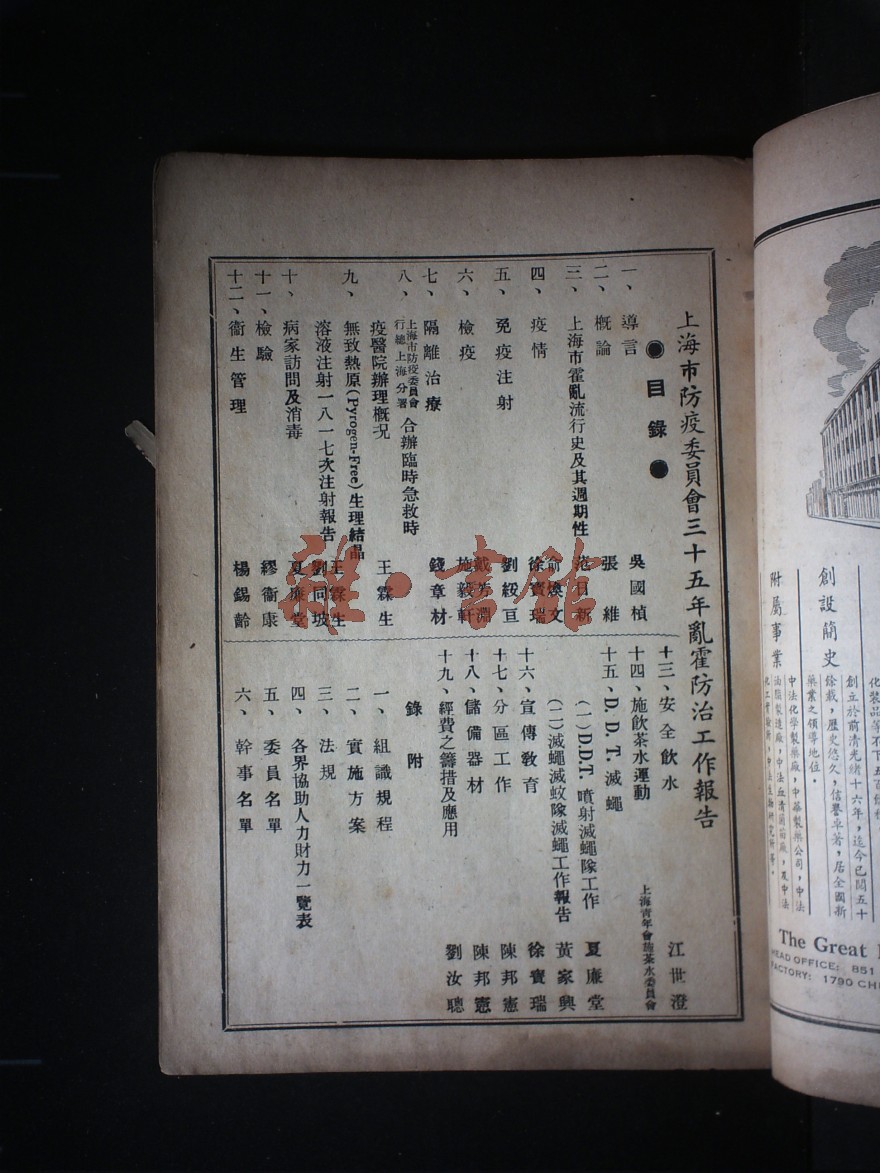 上海市防疫委員會三十五年亂霍防治工作報告
●目錄●
一、導言 吳國楨
二、概論 張維
三、上海市霍亂流行史及其週期性 范日新
四、疫情 俞煥文
徐寶瑞
五、免疫注射 劉綏亘
六、檢疫 戴芳淵
施毅軒
七、隔離治療 錢章材
八、上海市防疫委員會
行總上海分署 合辦臨時急救時
疫醫院辦理概況 王霖生
九、無致熱原(Pyrogen-Free)生理結晶
溶液注射一八一七次注射報告 王霖生
劉同坡
十、病家訪問及消毒 夏廉堂
十一、檢驗 繆衞康
十二、衞生管理 楊錫齡
十三、安全飲水 江世澄
十四、施飲茶水運動 上海青年會施茶水委員會
十五、D.D.T.滅蠅
(一)D.D.T.噴射滅蠅隊工作 夏廉堂
(二)滅蠅滅蚊隊滅蠅工作報告 黃家興
十六、宣傳敎育 徐寶瑞
十七、分區工作 陳邦憲
十八、儲備器材 陳邦憲
十九、經費之籌措及應用 劉汝聰
錄附
一、組識規程
二、實施方案
三、法規
四、各界協助人力財力一覽表
五、委員名單
六、幹事名單
雜·書館
化裝品等不下五百餘種
創設簡史
創立於前清光緒十六年，迄今已閱五十
餘載，歷史悠久，信譽卓著，居全國新
藥業之領導地位。
附屬事業
中法化學製藥廠，中華製藥公司，中法
油脂製造廠，中法血清菌苗廠，及中法
化工實驗所，中法生物研究所等。
The Great
HEAD OFFICE: 851
FACTORY: 1790 CH